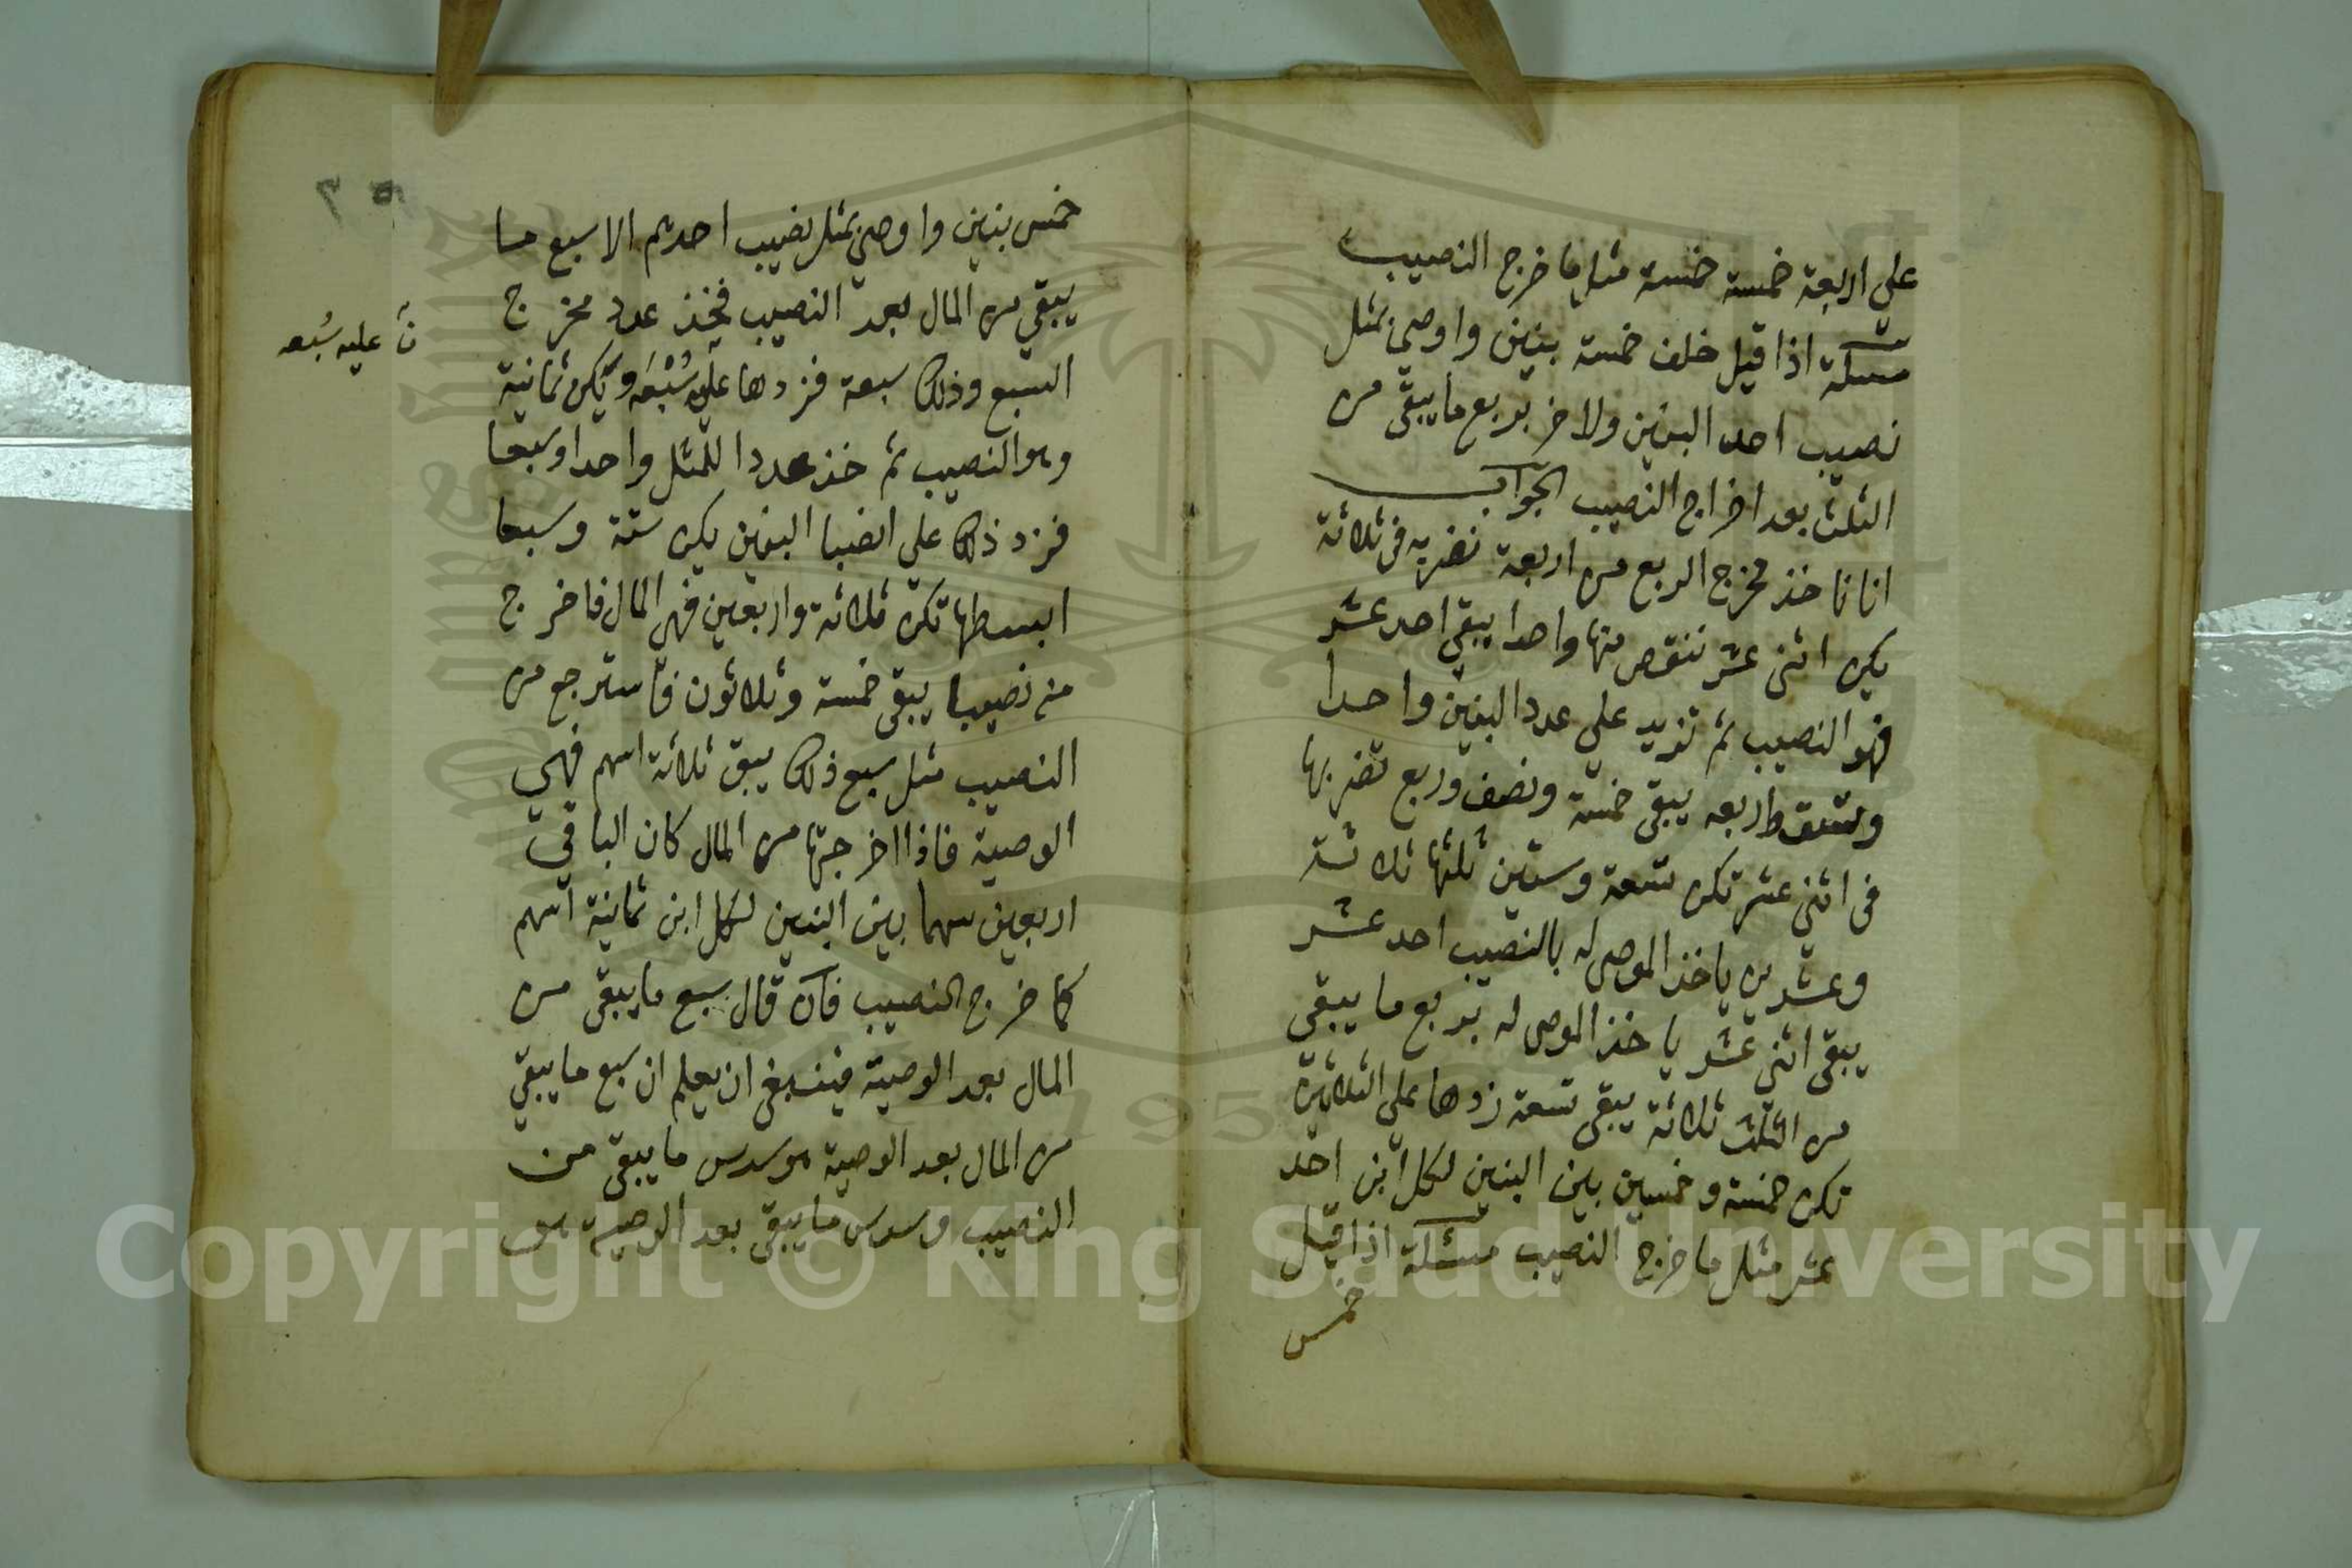 علي اربعة خمسة خمسة مثل ما خرج النصيب
مسئلة اذا قيل خلف خمسة بنين واوصي بمثل
نصيب احد البنين ولاخر بربع ما يبقي من
الثلث بعد اخراج النصيب الجواب
انا ناخذ مخرج الربع من اربعة نضربه في ثلاثة
يكن اثني عشر ننقص منها واحدا يبقي احد عشر
فهو النصيب ثم تزيد علي عدد البنين واحدا
وتسقط اربعه يبقي خمسة ونصف وربع تضربها
في اثني عشر تكن تسعة وستين ثلثها ثلاثة
وعشرين ياخذ الموصي له بالنصيب احد عشر
يبقي اثني عشر ياخذ الموصي له بربع ما يبقي
من الثلث ثلاثة يبقي تسعة زدها علي الثلاثين
تكن خمسة وخمسين بين البنين لكل ابن احد
عشر مثل ما خرج النصيب مسئلة اذا قيل
خمس
خمس بنين واوصي بمثل نصيب احدهم الا سبع ما
يبقي من المال بعد النصيب فخذ عدد مخرج
السبع وذلك سبعة فزدها عليه سُبْعَه ويكن ثمانية
وهو النصيب ثم خذ عددا للمثل واحدا وسبعا
فزد ذلك علي انصبا البنين يكن ستة وسبعا
ابسطها تكن ثلاثة واربعين فهي المال فاخرج
منه نصيبا يبقي خمسة وثلاثون فاسترجع من
النصيب مثل سبع ذلك يبق ثلاثة اسهم فهي
الوصية فاذا اخرجتها من المال كان الباقي
اربعين سهما بين البنين لكل ابن ثمانية اسهم
كما خرج النصيب فان قال سبع ما يبقي من
المال بعد الوصية فينبغي ان يعلم ان سبع ما يبقي
من المال بعد الوصية هو سدس ما يبقي من
النصيب وسدس ما يبقي بعد الوصية هو
ن عليه سُبعه
Copyright © King Saud University
195